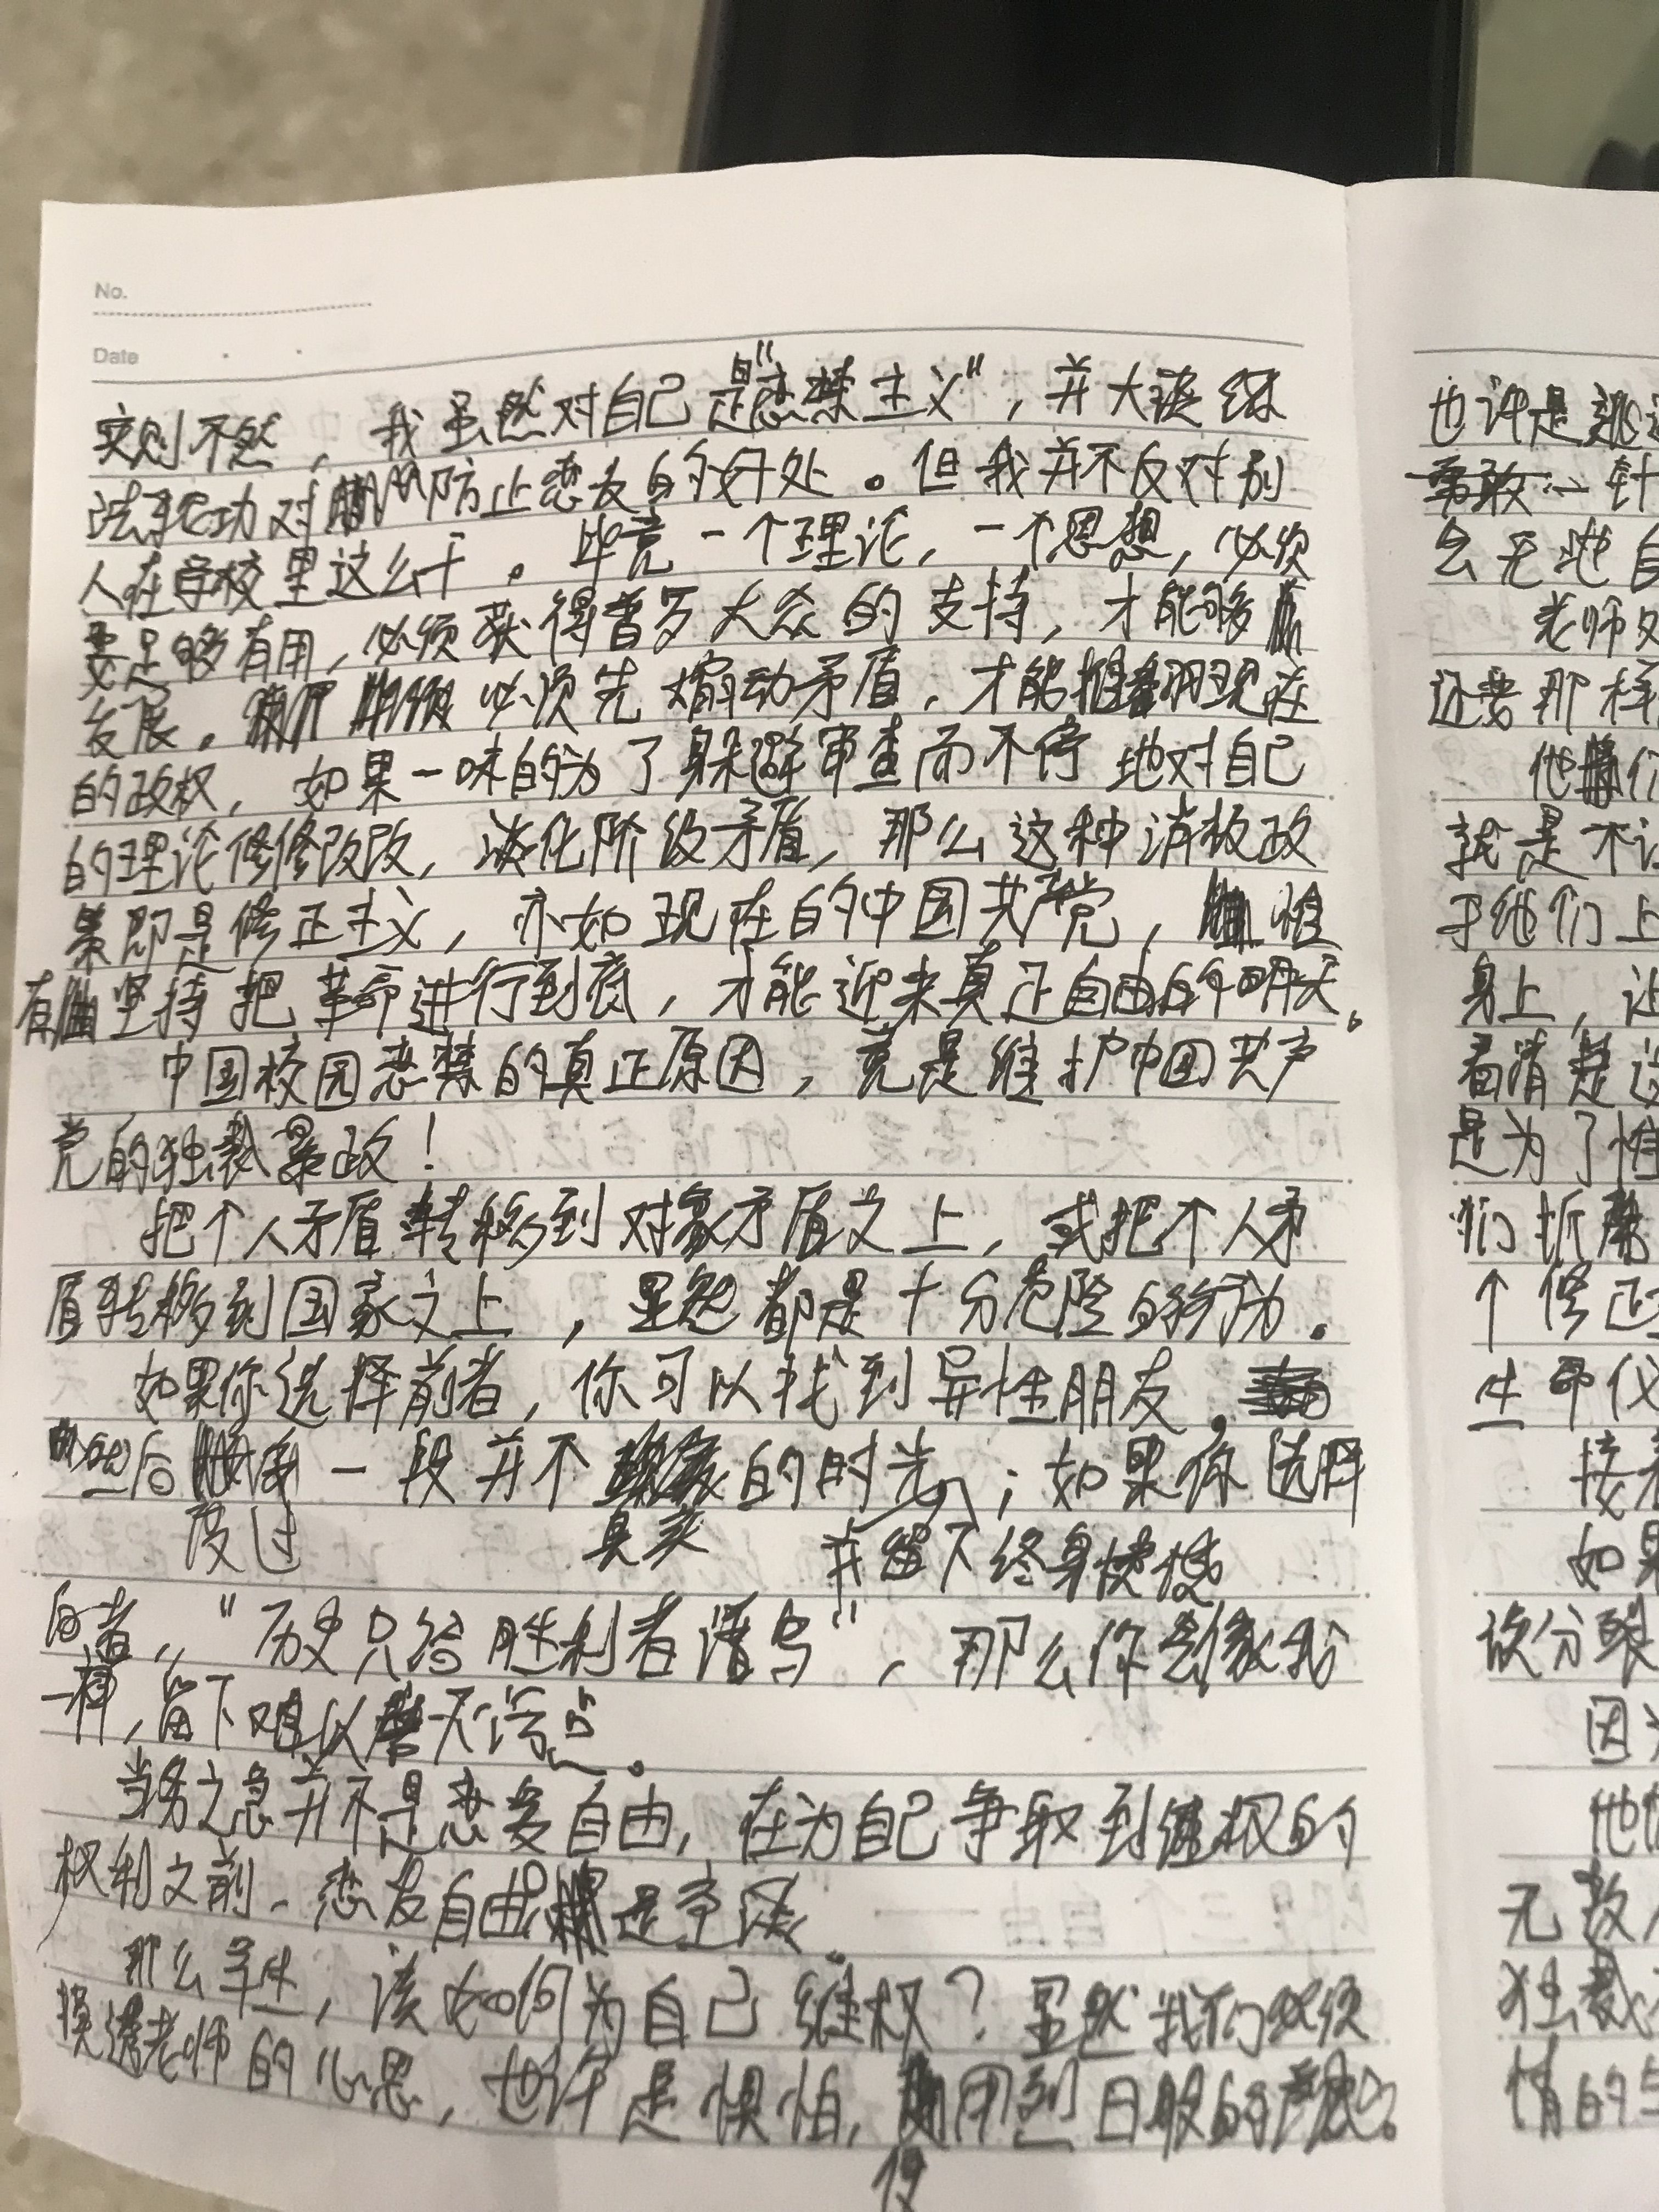 No.
Date
实则不然，我虽然对自己是"恋禁主义"，并大谈练
法轮功对防止恋爱的好处。但我并不反对别
人在学校里这么干。毕竟一个理论，一个思想，必须
要足够有用，必须获得普罗大众的支持，才能够
发展。必须先煽动矛盾，才能推翻现在
的政权，如果一味的为了躲避审查而不停地对自己
的理论修修改改，淡化阶级矛盾，那么这种消极政
策即是修正主义，亦如现在的中国共产党，惟
有坚持把革命进行到底，才能迎来真正自由的明天。
中国校园恋禁的真正原因，竟是维护中国共产
党的独裁暴政！
把个人矛盾转移到对象矛盾之上，或把个人矛
盾转移到国家之上，显然都是十分危险的行为。
如果你选择前者，你可以找到异性朋友，
然后度过一段并不真实的时光，并留下终身愧疚；如果你选择
后者，"历史只给胜利者谱写"，那么你会像我
一样，留下难以磨灭污点。
当务之急并不是恋爱自由，在为自己争取到维权的
权利之前，恋爱自由是空谈。
那么学生，该如何为自己维权？虽然我们必须
摸透老师的心思，也许是惧怕，使用到日股的
也许是
勇敢
么无地自
老师
还要那样
他们
就是不
于他们上
身上，让
看清楚这
是为了
们折
个修正
生命仅
接着
如果
该分裂
因为
他们
无数人
独裁
情的